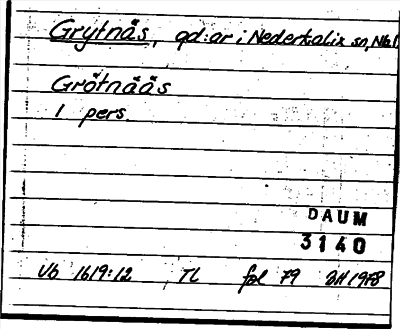 Grytnäs, gd:ar i Nederkalix sn, Nb
Grötnääs
1 pers.
DAUM
3140
Vb 1619:12 TL fol 79 1978